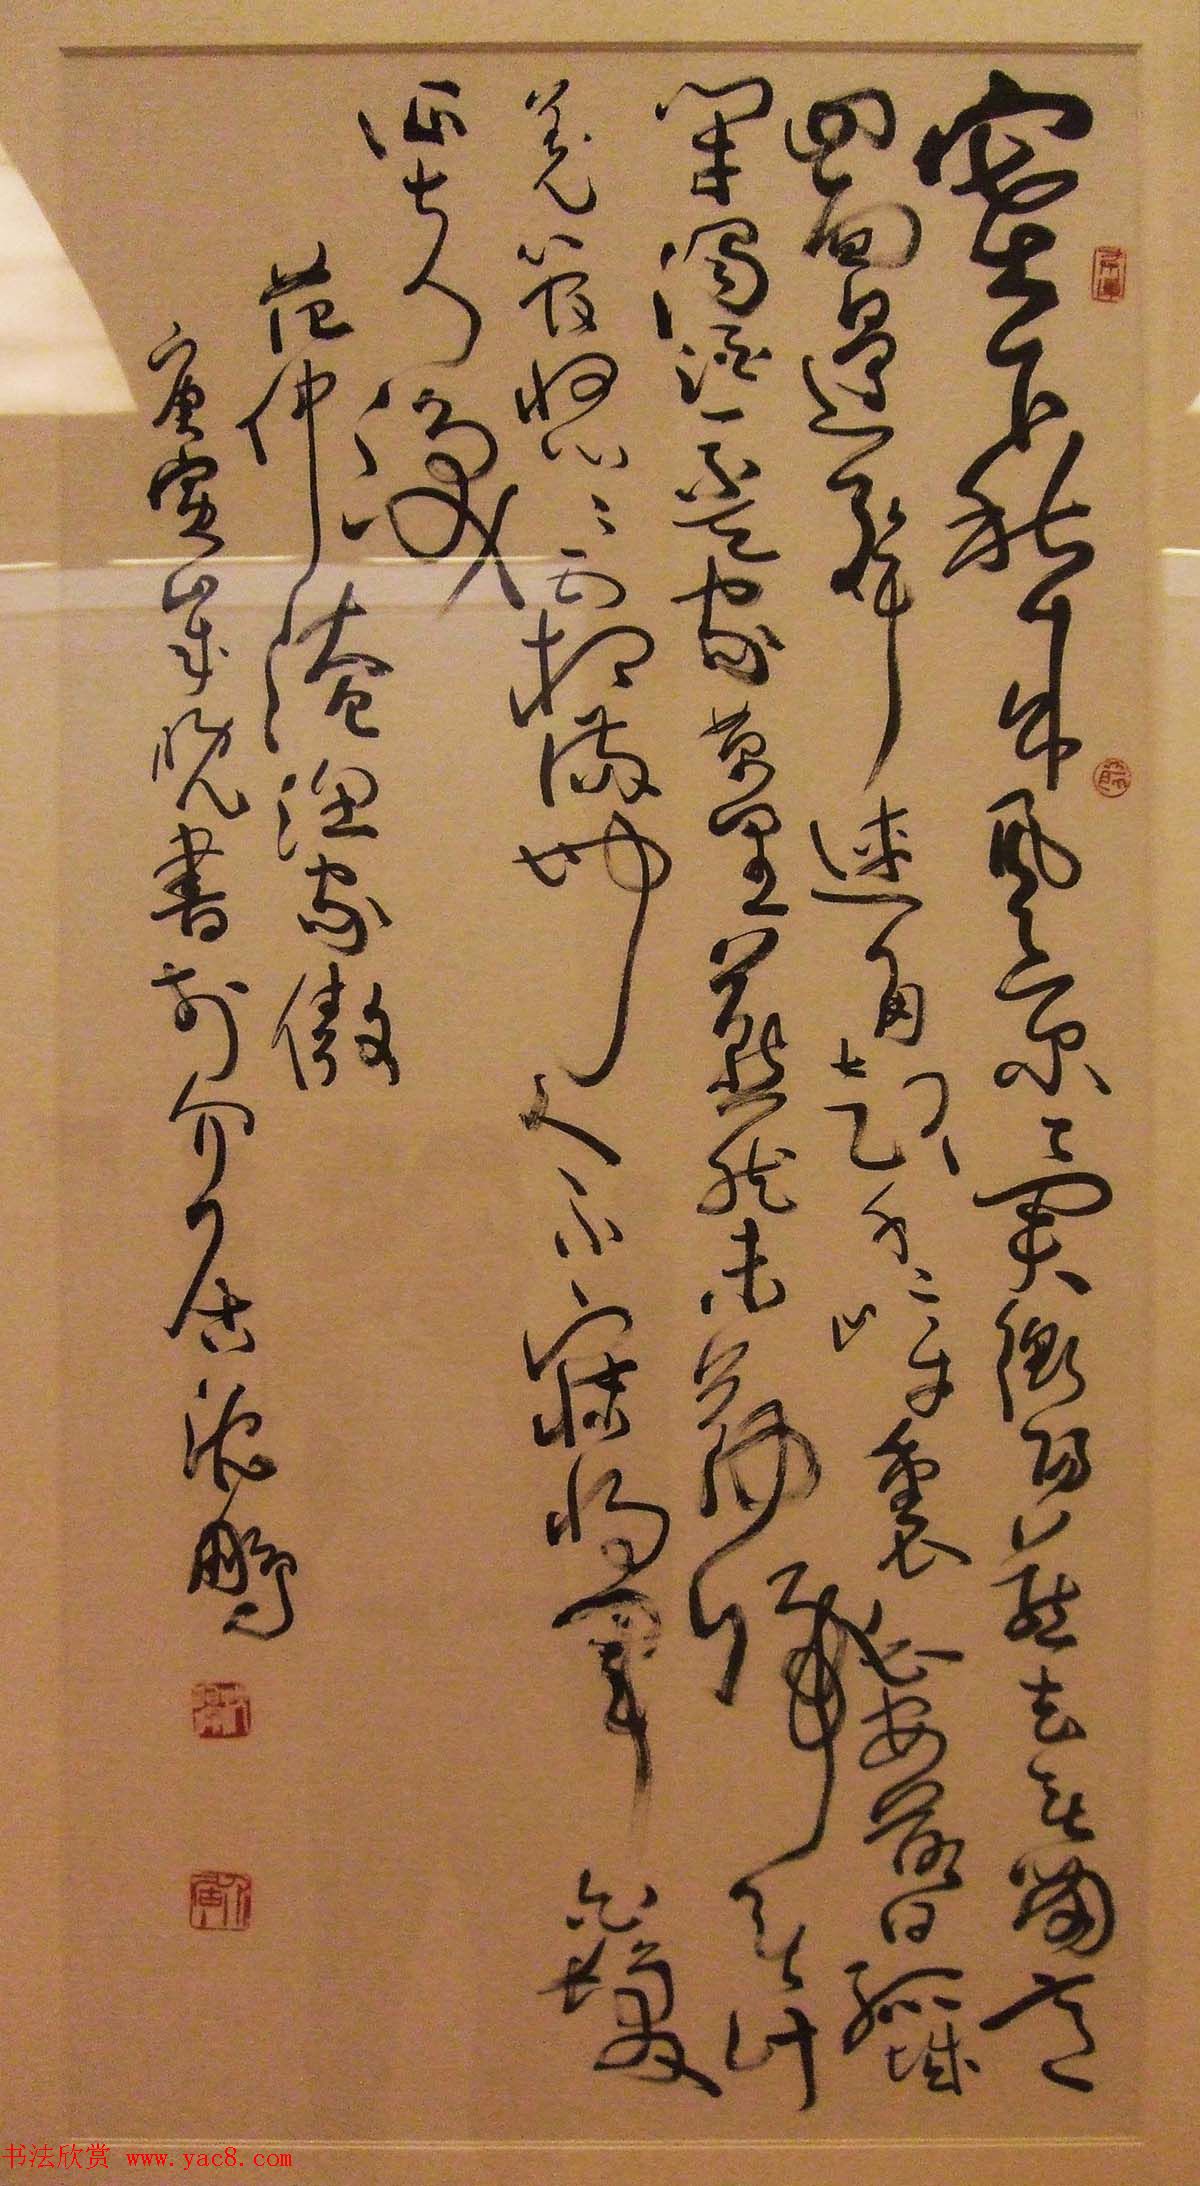 塞下秋来风景异衡阳雁去无留意
四面边声连角起千嶂里长安落日孤城
闭浊酒一杯家万里燕然未勒归无计
羌管悠悠霜满地人不寐将军白发
征夫泪
范仲淹渔家傲
庚寅岁晚书于介居沈鹏
书法欣赏 www.yac8.com